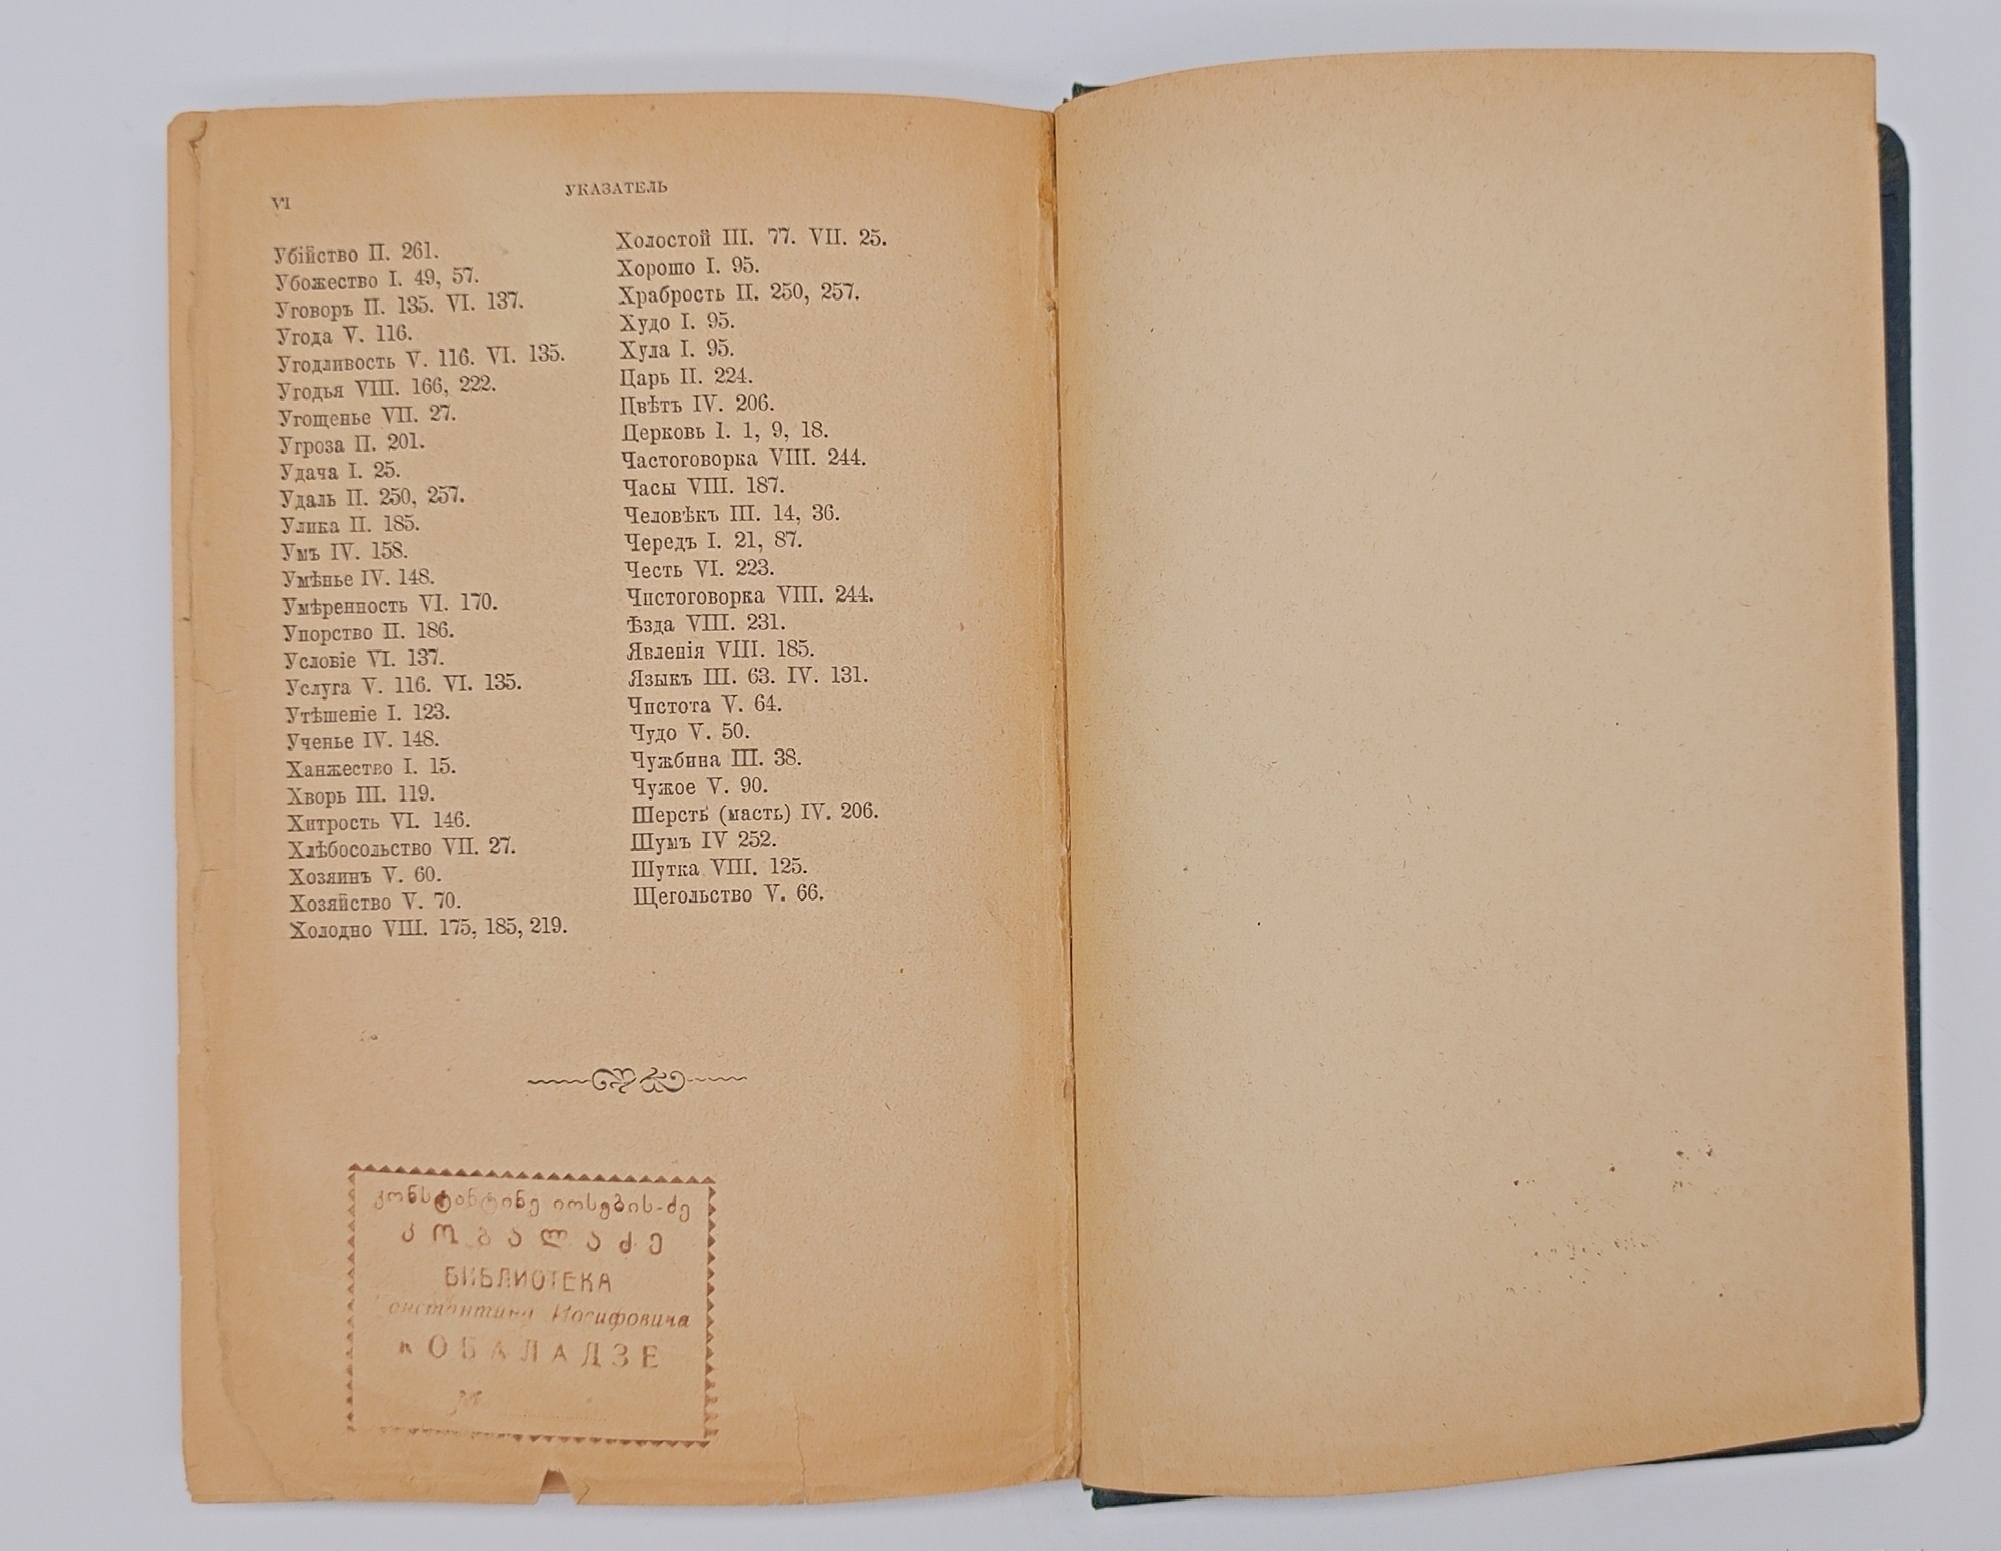 VI
УКАЗАТЕЛЬ
Убійство II. 261.
Убожество I. 49, 57.
Уговоръ II. 135. VI. 137.
Угода V. 116.
Угодливость V. 116. VI. 135.
Угодья VIII. 166, 222.
Угощенье VII. 27.
Угроза II. 201.
Удача I. 25.
Удаль II. 250, 257.
Улика II. 185.
Умъ IV. 158.
Умѣнье IV. 148.
Умѣренность VI. 170.
Упорство II. 186.
Условіе VI. 137.
Услуга V. 116. VI. 135.
Утѣшеніе I. 123.
Ученье IV. 148.
Ханжество I. 15.
Хворь III. 119.
Хитрость VI. 146.
Хлѣбосольство VII. 27.
Хозяинъ V. 60.
Хозяйство V. 70.
Холодно VIII. 175, 185, 219.
Холостой III. 77. VII. 25.
Хорошо I. 95.
Храбрость II. 250, 257.
Худо I. 95.
Хула I. 95.
Царь II. 224.
Цвѣтъ IV. 206.
Церковь I. 1, 9, 18.
Частоговорка VIII. 244.
Часы VIII. 187.
Человѣкъ III. 14, 36.
Чередъ I. 21, 87.
Честь VI. 223.
Чистоговорка VIII. 244.
Ѣзда VIII. 231.
Явленія VIII. 185.
Языкъ III. 63. IV. 131.
Чистота V. 64.
Чудо V. 50.
Чужбина III. 38.
Чужое V. 90.
Шерсть (масть) IV. 206.
Шумъ IV 252.
Шутка VIII. 125.
Щегольство V. 66.
კონსტანტინე იოსების-ძე
კობალაძე
БИБЛИОТЕКА
Константина Иосифовича
КОБАЛАДЗЕ
№